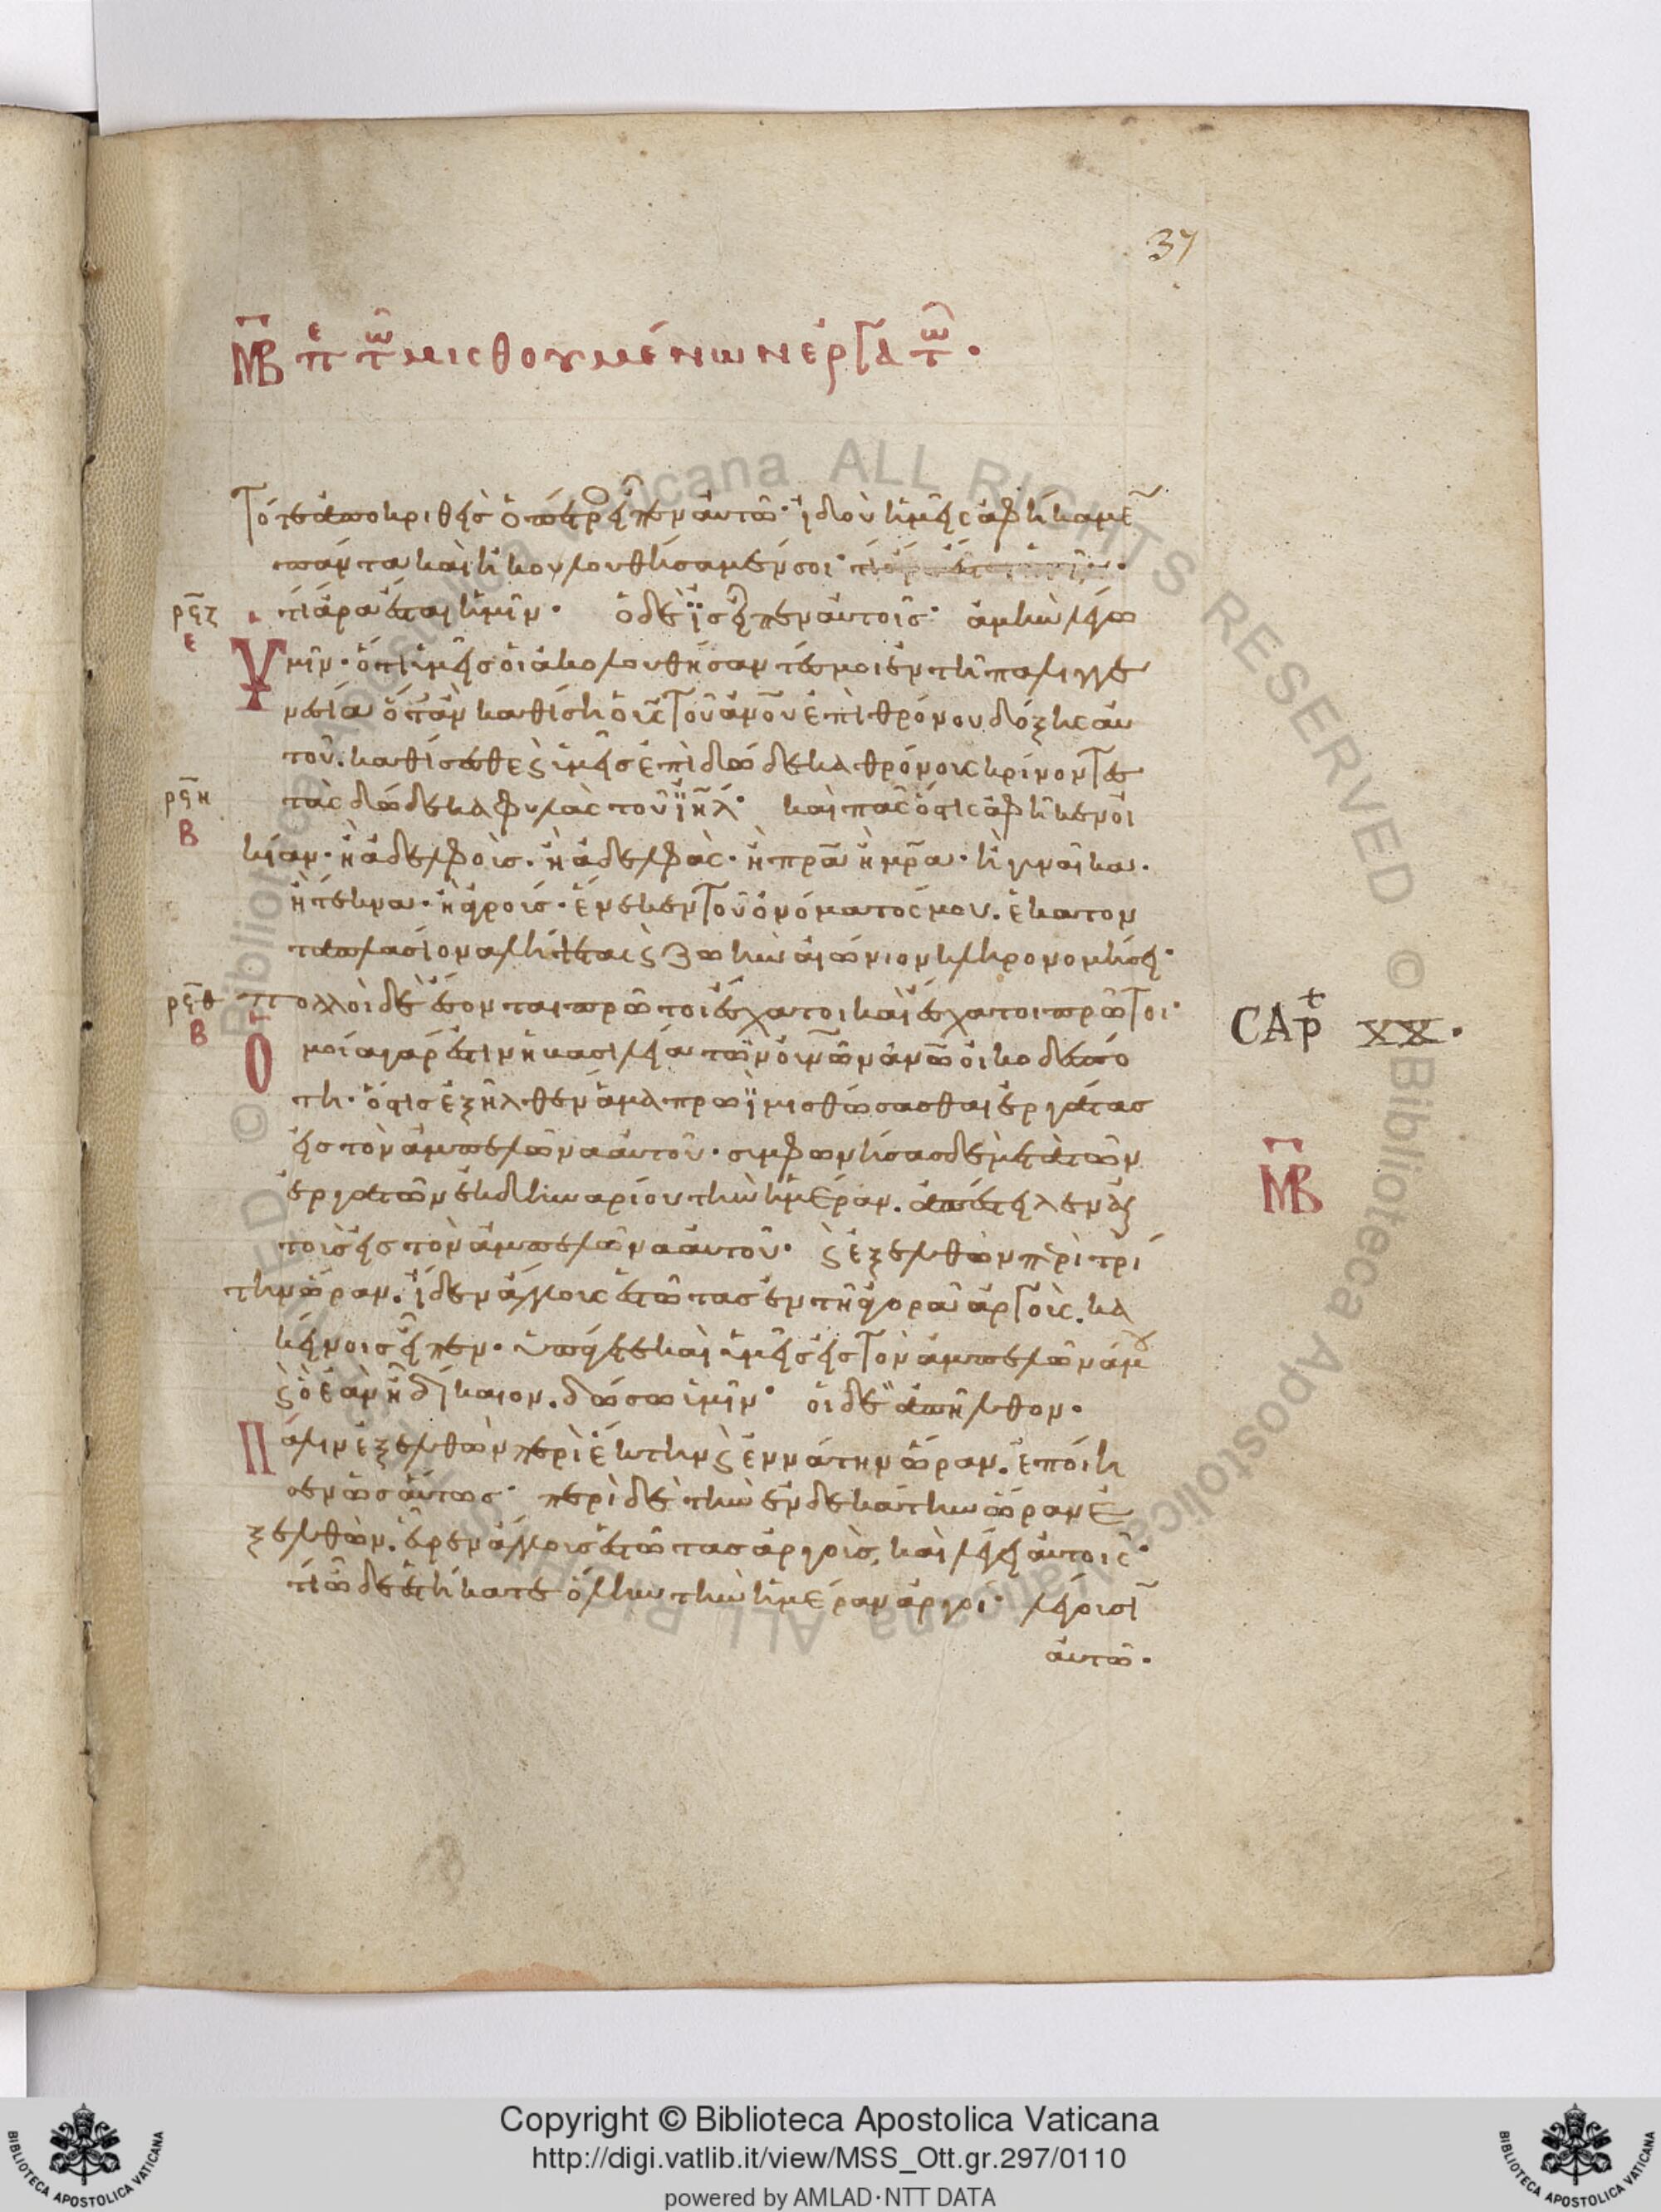 37
ΜΒ πε τῶ μισθουμένων ἐργατῶ·
Τότε ἀποκριθεὶς ὁ πέτρος εἶπεν αὐτῶ· ἰδοὺ ἡμεῖς ἀφήκαμε
πάντα καὶ ἠκολουθήσαμέν σοι·
ρϟζ τί ἄρα ἔσται ἡμῖν· ὁ δὲ ϊς εἶπεν αὐτοῖς· ἀμὴν λέγω
ε
Υμῖν· ὅτι ὑμεῖς οἱ ἀκολουθήσαντές μοι ἐν τῆ παλιγγε
νεσία ὅταν καθίση ὁ υἱς τοῦ ἀνου ἐπὶ θρόνου δόξης αὐ
τοῦ. καθίσεσθε ϗ ὑμεῖς ἐπὶ δώδεκα θρόνοις κρίνοντε
ρϟη τὰς δώδεκα φυλὰς τοῦ ϊηλ· καὶ πᾶς ὅστις ἀφῆκεν οἰ
Β
κίαν· ἢ ἀδελφοὺς. ἢ ἀδελφὰς· ἢ πρα ἢ μρα· ἢ γυναῖκα.
ἢ τέκνα· ἢ ἀγρούς· ἕνεκεν τοῦ ὀνόματός μου. ἑκατον
ταπλασίονα λήψεται ϗ ζωὴν αἰώνιον κληρονομήσει·
ρϟθ πολλοὶ δὲ ἔσονται πρῶτοι ἔσχατοι καὶ ἔσχατοι πρῶτοι·
Β
CAPt XX.
Ομοία γάρ ἐστιν ἡ βασιλεία τῶν οὐνῶν ἀνω οἰκοδεσπό
τη· ὅστις ἐξῆλθεν ἅμα πρωῒ μισθώσασθαι ἐργάτας
εἰς τὸν ἀμπελῶνα αὐτοῦ· συμφωνήσας δὲ μετὰ τῶν
ΜΒ
ἐργατῶν ἐκ δηναρίου τὴν ἡμέραν. ἀπέστειλεν αὐ
τοὺς εἰς τὸν ἀμπελῶνα αὐτοῦ· ϗ ἐξελθὼν περὶ τρί
την ὥραν. ἴδεν ἄλλους ἑστῶτας ἐν τῆ ἀγορᾶ ἀργοὺς. κα
κείνοις εἶπεν· ὑπάγετε καὶ ὑμεῖς εἰς τὸν ἀμπελῶνά μου
ϗ ὃ ἐὰν ἦ δίκαιον. δώσω ὑμῖν· οἱ δὲ ἀπῆλθον.
Πάλιν ἐξελθὼν περὶ ἕκτην ϗ ἐννάτην ὥραν. ἐποίη
σεν ὡσαύτως· περὶ δὲ τὴν ἑνδεκάτην ὥραν ἐ
ξελθὼν. εὗρεν ἄλλους ἑστῶτας ἀργοὺς, καὶ λέγει αὐτοῖς·
τί ὧδε ἑστήκατε ὅλην τὴν ἡμέραν ἀργοί· λέγουσι
αὐτῶ·
Copyright © Biblioteca Apostolica Vaticana
http://digi.vatlib.it/view/MSS_Ott.gr.297/0110
powered by AMLAD·NTT DATA